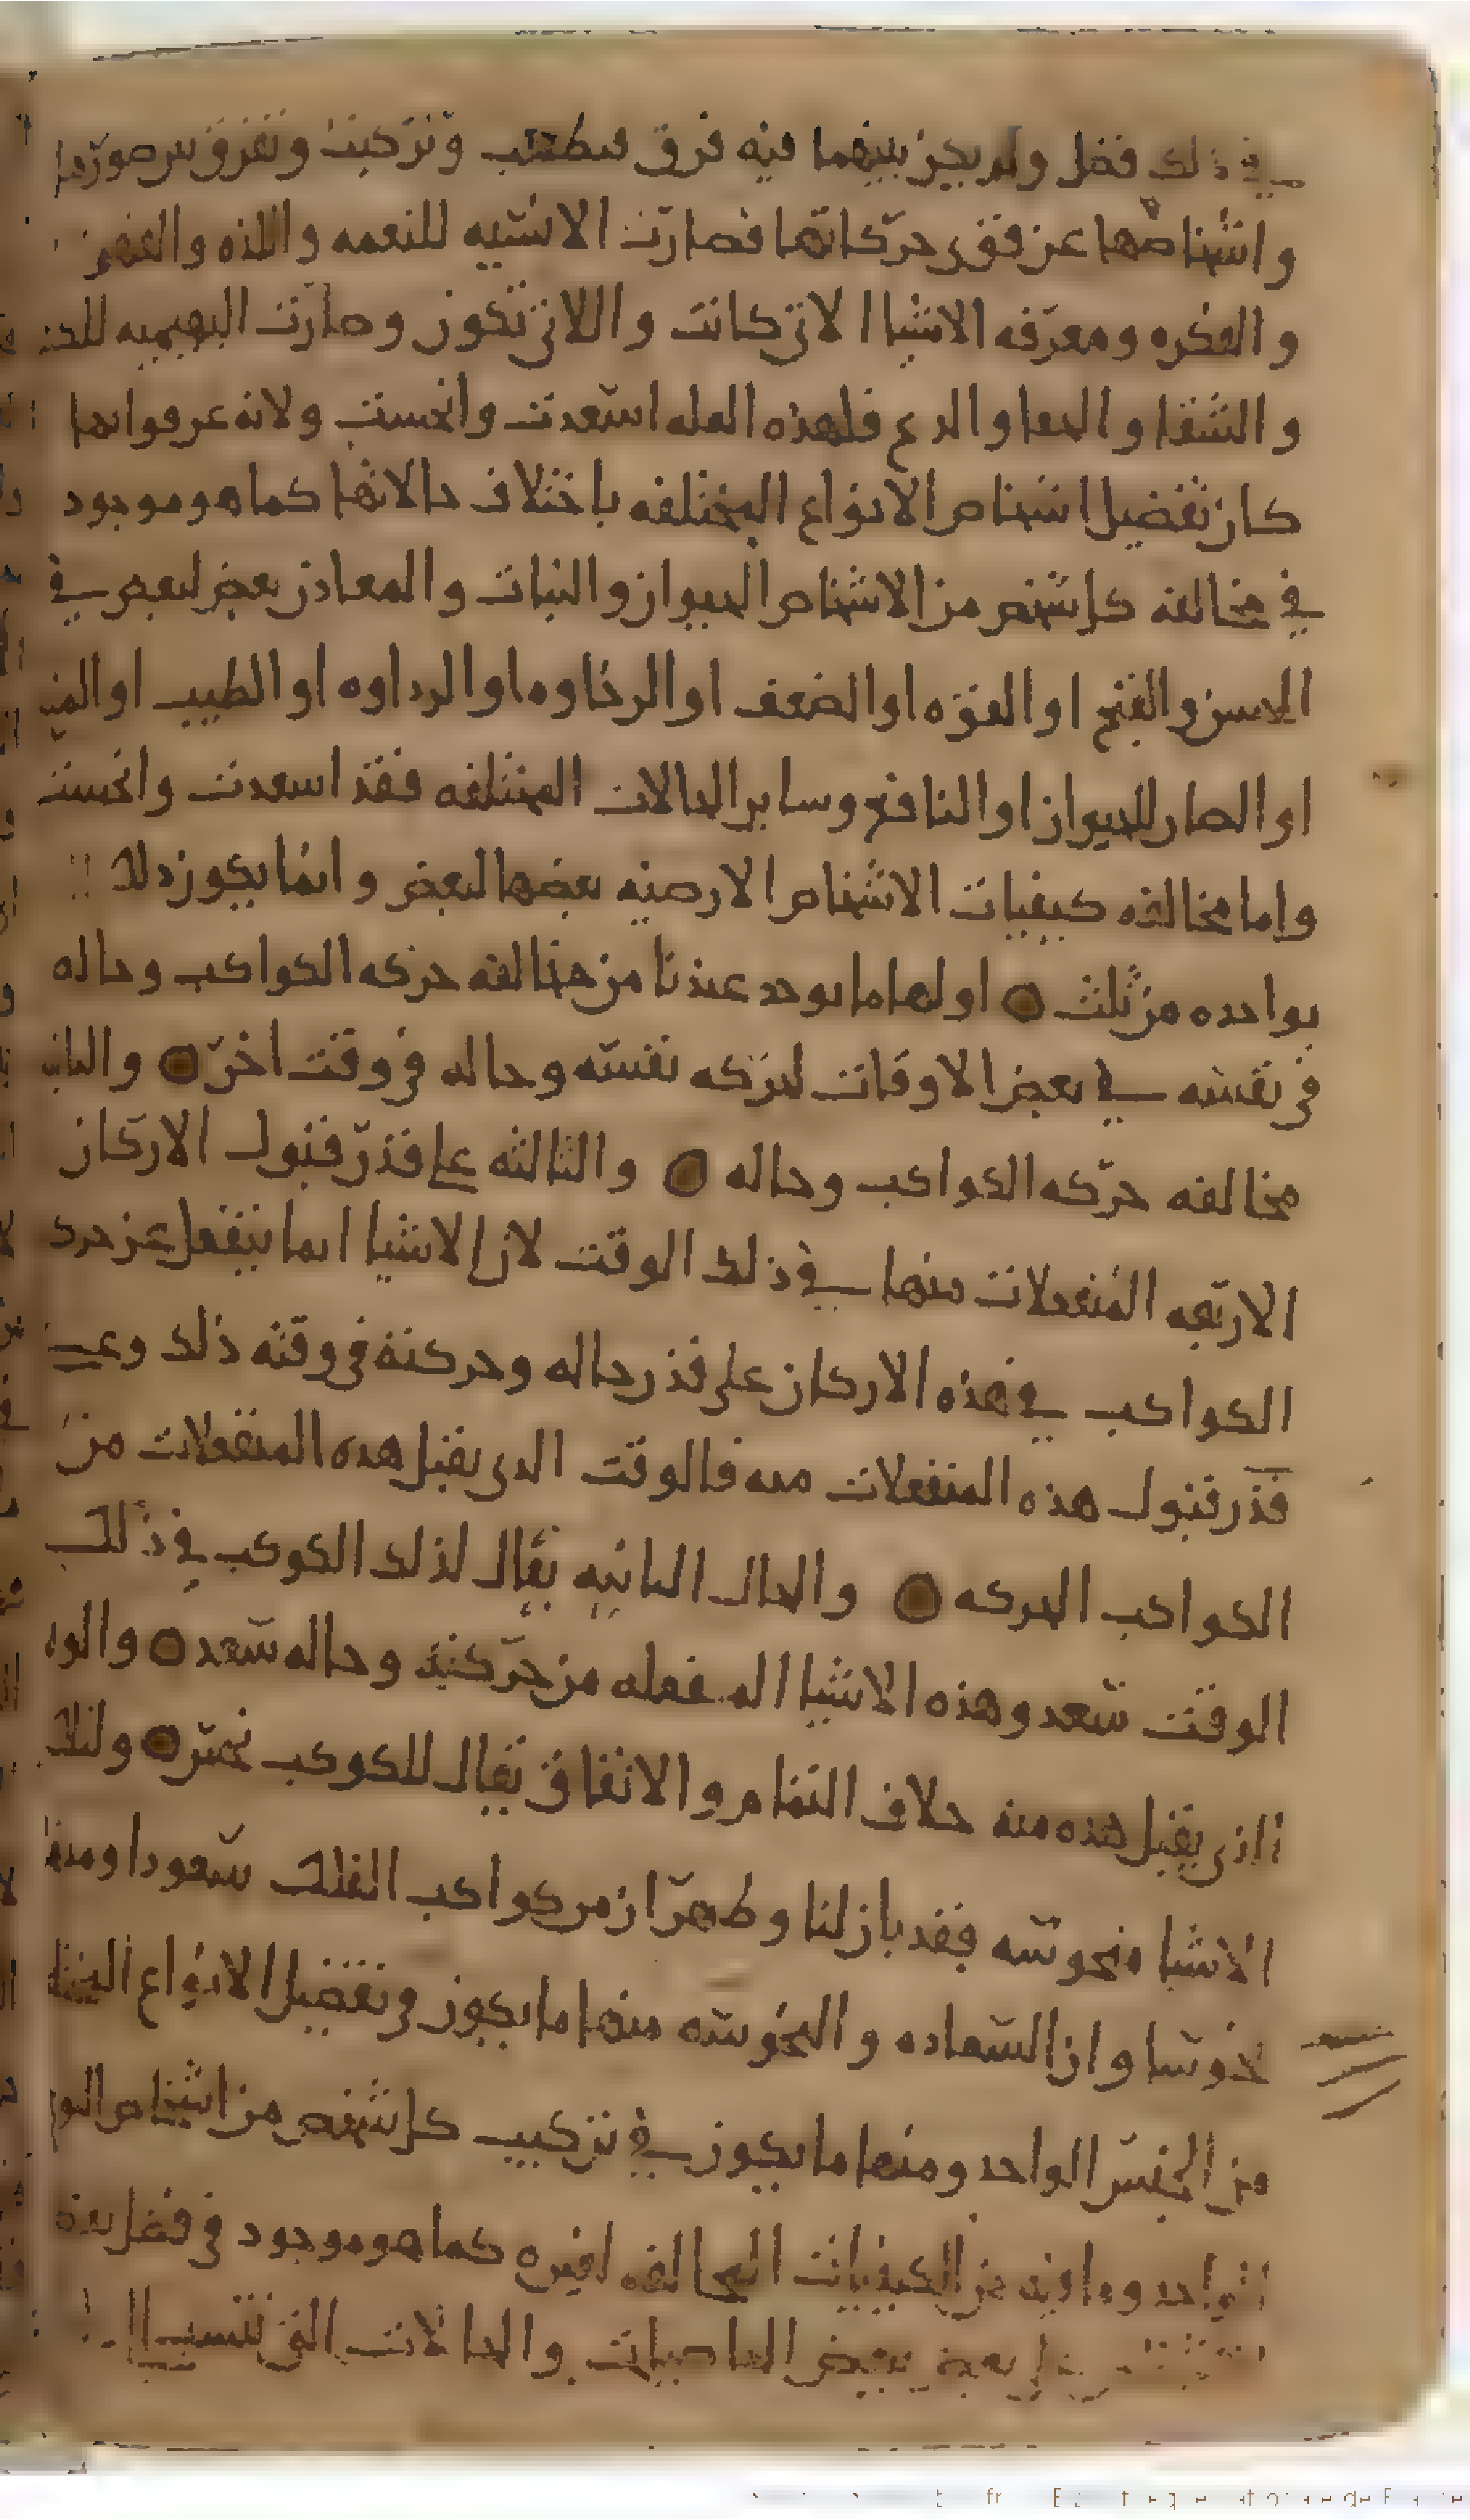 في ذلك فضل ولم يكن بينهما فيه فرق وتركيب وتفرق بين صورتها
واشخاصها عن قوى حركاتها فصارت الانسيه للنعمه واللذه والعقل
والفكره ومعرفه الاشيا الاتي كانت واللاتي تكون وصارت البهيميه
والشقا فلهذه العله اسعدت وانحست ولانه عرفوا انما
كان تفضيل اشخاص الانواع المختلفه باختلاف حالاتها كما هو موجود
في مخالفه كل شخص من الاشخاص الحيوان والنبات والمعادن بعض لبعض في
الحسن والقبح او القوه او الضعف او الرخاوه او الرداوه او الطيب او
او الضار للحيوان او النافع وساير الحالات المختلفه فقد اسعدت وانحست
واما مخالفه كيفيات الاشخاص الارضيه بعضها لبعض وانما يكون ذلك
بواحده من ثلث ○ اولها ما يوجد عندنا من مخالفه حركه الكواكب وحاله
في نفسه في بعض الاوقات لحركه نفسه وحاله في وقت اخر ○ والثانيه
مخالفه حركه الكواكب وحاله ○ والثالثه على قدر قبول الاركان
الاربعه المنفعلات منها في ذلك الوقت لان الاشيا انما ينفعل عن حركه
الكواكب في هذه الاركان على قدر حاله وحركته في وقته ذلك وعلى
قدر قبول هذه المنفعلات منه فالوقت الذي يقبل هذه المنفعلات من
الكواكب الحركه ○ والحال الثانيه يقال لذلك الكوكب في ذلك
الوقت سعد وهذه الاشيا المنفعله من حركته وحاله سعد ○ والوقت
الذي يقبل هذه منه خلاف التمام والاتفاق يقال للكوكب نحس ○ ولتلك
الاشيا منحوسه فقد بان لنا وظهر ان من كواكب الفلك سعودا ومنها
نحوسا وان السعاده والنحوسه منها ما يكون في تفضيل الانواع
من الجنس الواحد ومنها ما يكون في تركيب كل شخص من اشخاص النوع
الواحد وما فيه من الكيفيات المخالفه لغيره كما هو موجود في فضل
بعض ببعض الخاصيات والحالات التي تنسب